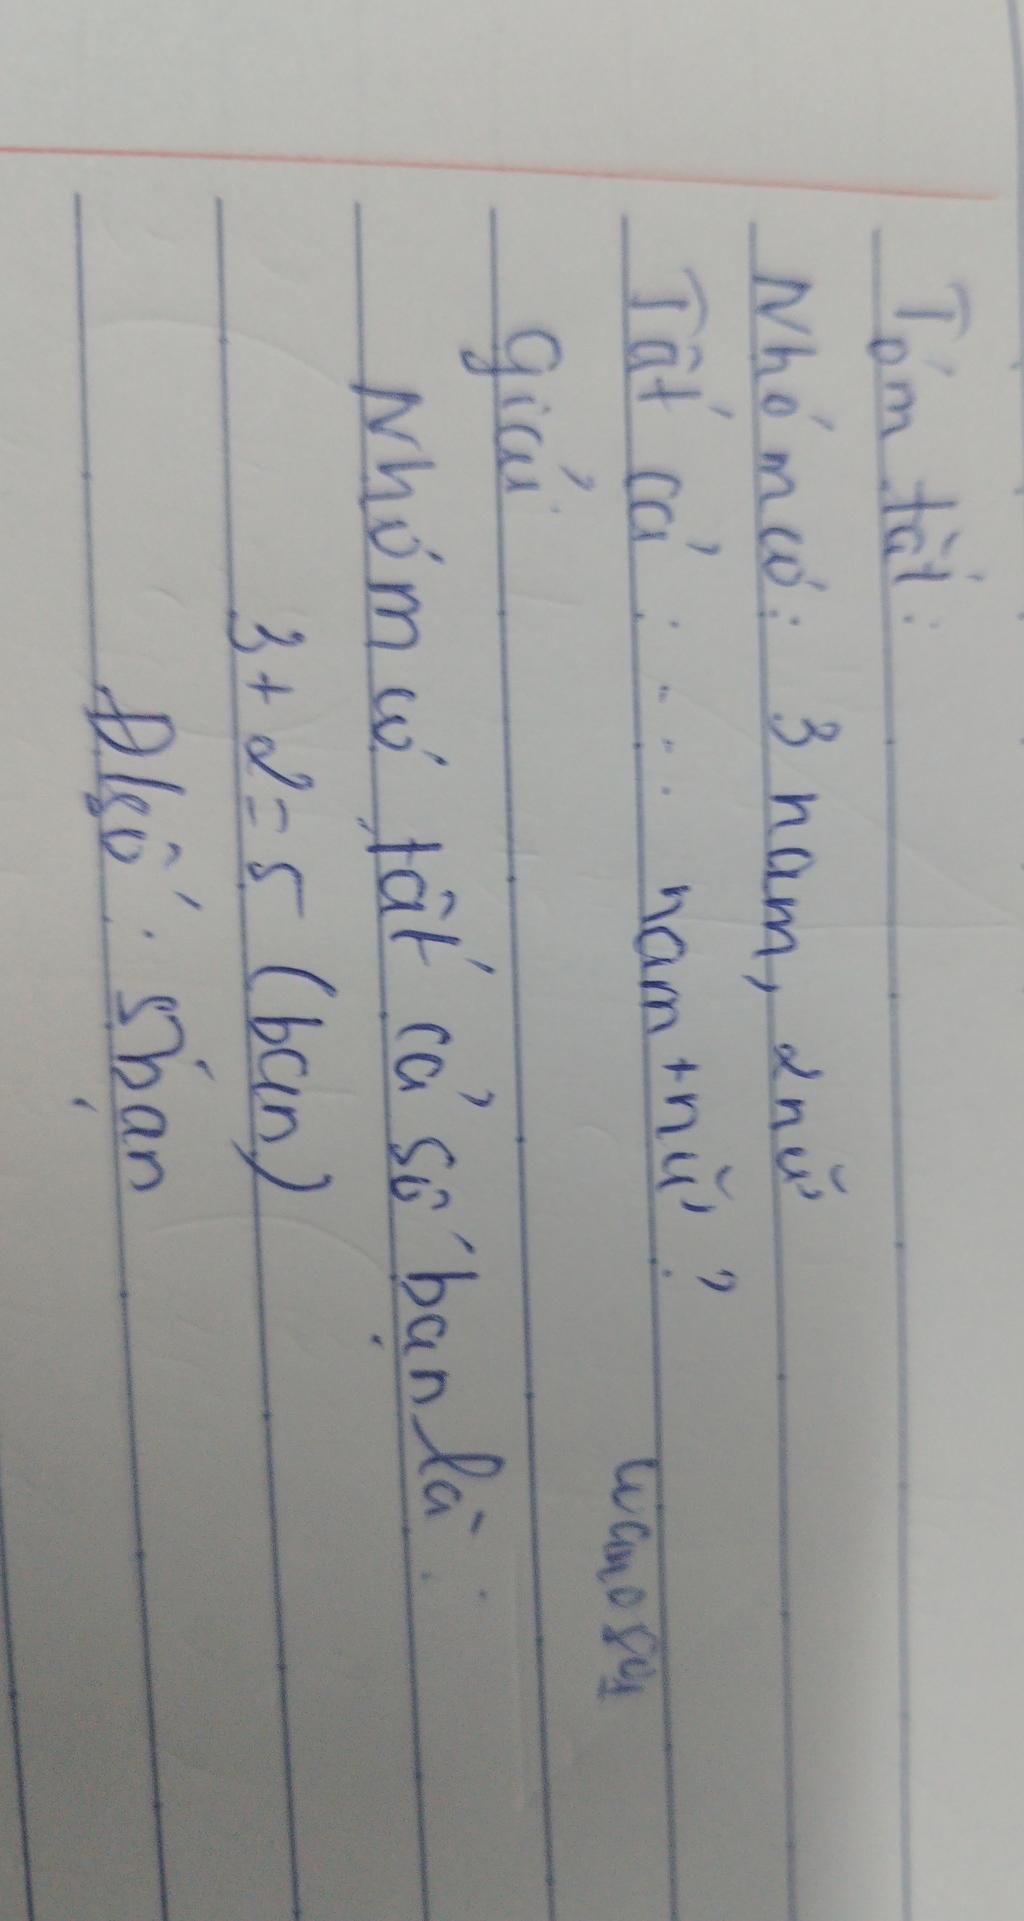 Tóm tắt:
Nhóm có: 3 nam, 2 nữ
Tất cả : ... nam + nữ ?
Giải
Nhóm có tất cả số bạn là :
3 + 2 = 5 (bạn)
Đ/số : 5 bạn